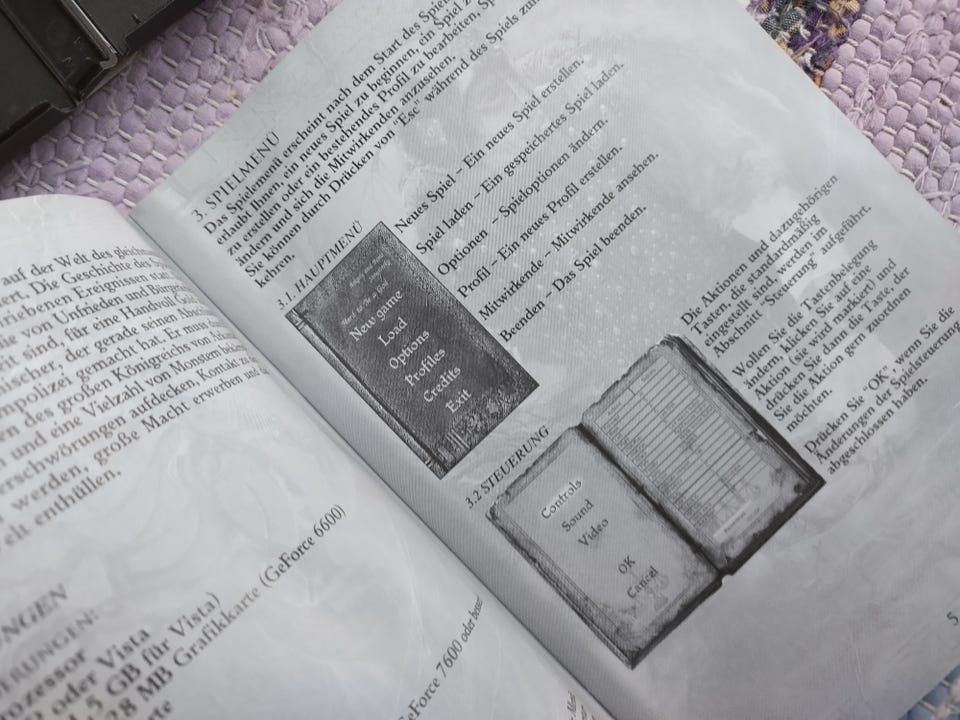 auf der Welt des
Die Geschichte des
Ereignissen
von Unfrieden und
sind, für eine Handvoll
der gerade seinen
gemacht hat. Er muss
des großen Königreichs von
und eine Vielzahl von Monstern
aufdecken, Kontakt zu
werden, große Macht erwerben und
enthüllen.
oder Vista
GB für Vista)
MB Grafikkarte (GeForce 6600)
7600 oder besser
3. SPIELMENÜ
Das Spielemenü erscheint nach dem Start des
erlaubt Ihnen, ein neues Spiel zu beginnen, ein Spiel
zu erstellen oder ein bestehendes Profil zu bearbeiten,
ändern und sich die Mitwirkenden anzusehen.
Sie können durch Drücken von "Esc" während des Spiels
kehren.
3.1 HAUPTMENÜ
New game
Load
Options
Profiles
Credits
Exit
Neues Spiel – Ein neues Spiel erstellen.
Spiel laden – Ein gespeichertes Spiel laden.
Optionen – Spieloptionen ändern.
Profil – Ein neues Profil erstellen.
Mitwirkende – Mitwirkende ansehen.
Beenden – Das Spiel beenden.
3.2 STEUERUNG
Controls
Sound
Video
OK
Cancel
Die Aktionen und dazugehörigen
Tasten, die standardmäßig
eingestellt sind, werden im
Abschnitt "Steuerung" aufgeführt.
Wollen Sie die Tastenbelegung
ändern, klicken Sie auf eine
Aktion (sie wird markiert) und
drücken Sie dann die Taste, der
Sie die Aktion gern zuordnen
möchten.
Drücken Sie "OK", wenn Sie die
Änderungen der Spielsteuerung
abgeschlossen haben.
5